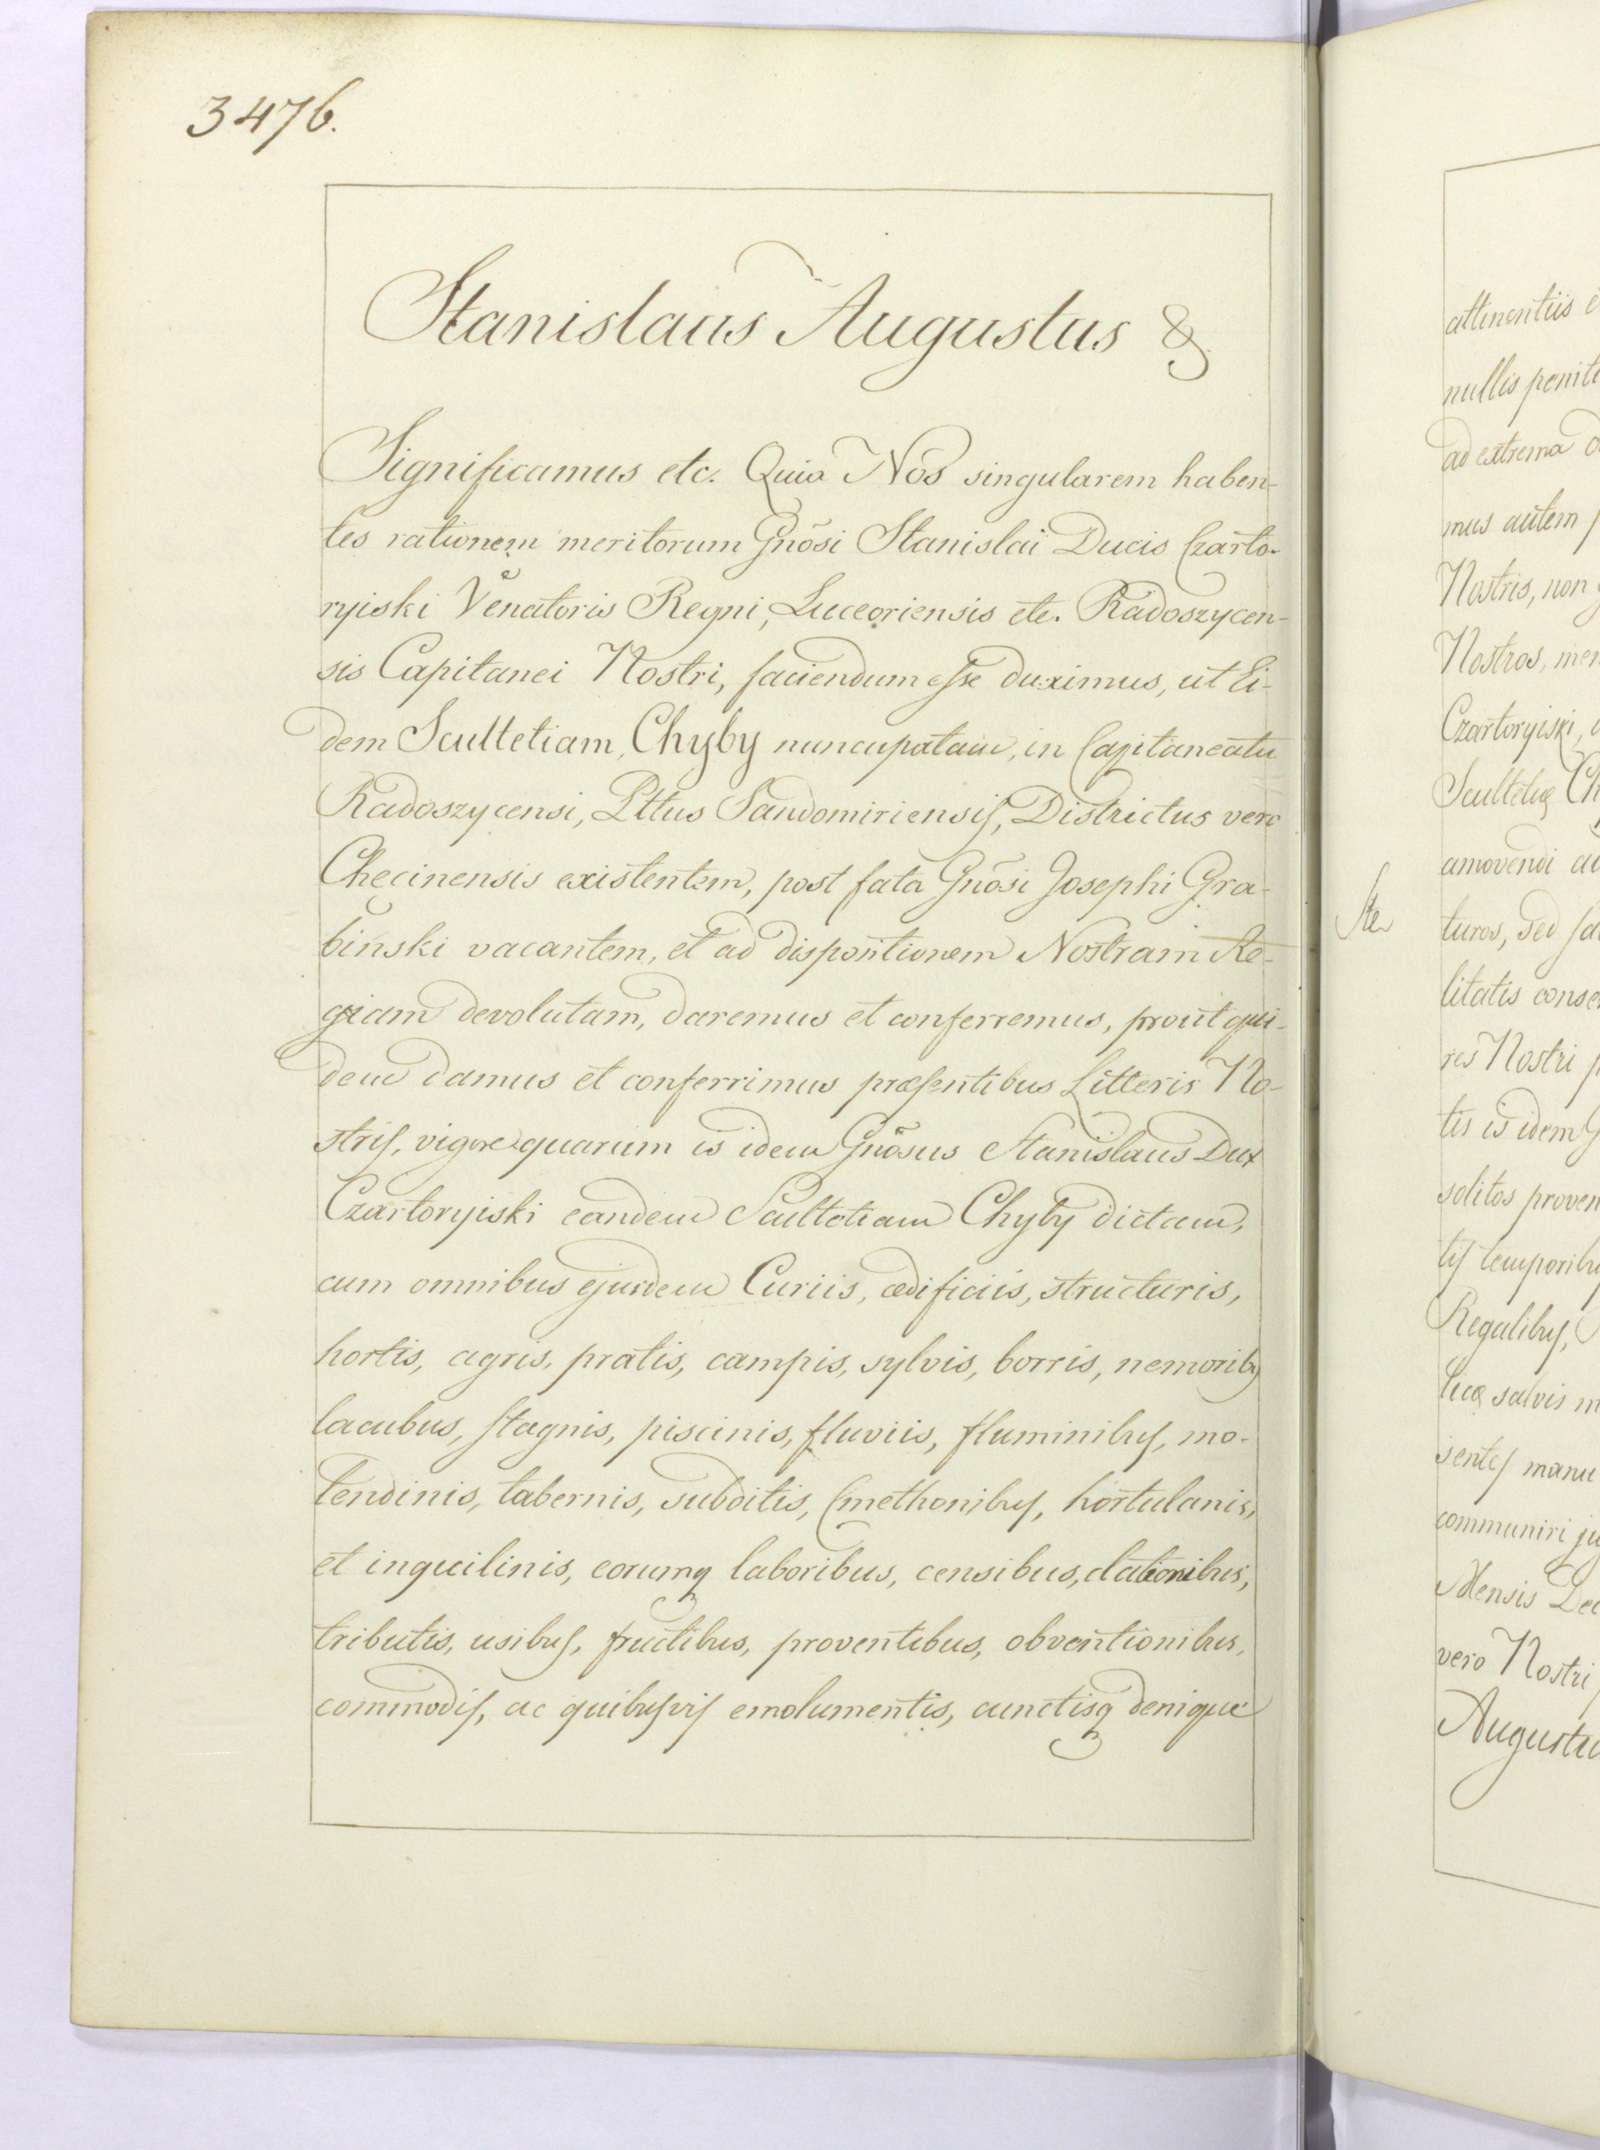 3476.
Stanislaus Augustus &
Significamus etc. Quia Nos singularem haben-
tes rationem meritorum Gnõsi Stanislai Ducis Czarto-
ryiski Venatoris Regni, Luceoriensis etc. Radoszycen-
sis Capitanei Nostri, faciendum esse duximus, ut Ei-
dem Scultetiam, Chyby nuncupatam, in Capitaneatu
Radoszycensi, Pttus Sandomiriensis, Districtus vero
Checinensis existentem, post fata Gnõsi Josephi Gra-
binski vacantem, et ad dispositionem Nostram Re-
giam devolutam, daremus et conferremus, prout qui-
dem damus et conferrimus præsentibus Litteris No-
stris, vigore quarum is idem Gnõsus Stanislaus Dux
Czartoryiski eandem Scultetiam Chyby dictam,
cum omnibus ejusdem Curiis, ædificiis, structuris,
hortis, agris, pratis, campis, sylvis, borris, nemoribq
lacubus, stagnis, piscinis, fluviis, fluminibus, mo-
lendinis, tabernis, subditis, Cmethonibus, hortulanis,
et inquilinis, eorumq laboribus, censibus, dationibus,
tributis, usibus, fructibus, proventibus, obventionibus,
commodis, ac quibusvis emolumentis, cunctisq denique
attinentiis
nullis penit
ad extrema
mus autem
Nostris, non
Nostros, me
Czartoryiski,
Scultetiæ Ch
amovendi
turos, sed
litatis conse
ris Nostri
tis is idem G
solitos proven
tis temporibu
Regalibus,
licæ salvis m
sentes manu
communiri ju
Mensis Dec
vero Nostri
Augustu